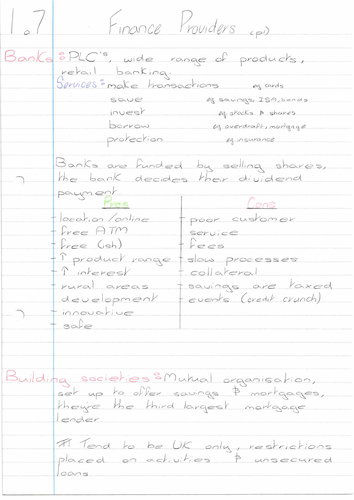 1.7 Finance Providers (p1)
Banks: PLC's, wide range of products,
retail banking.
Services: make transactions eg cards
save eg savings, ISA, bonds
invest eg stocks & shares
borrow eg overdraft, mortgage
protection eg insurance
Banks are funded by selling shares,
the bank decides their dividend
payment
Pros Cons
- location/online - poor customer
- free ATM service
- free (ish) - fees
- ↑ product range - slow processes
- ↑ interest - collateral
- rural areas - savings are taxed
development - events (credit crunch)
- innovative
- safe
Building societies: Mutual organisation,
set up to offer savings & mortgages,
they're the third largest mortgage
lender
* Tend to be UK only, restrictions
placed on activities & unsecured
loans